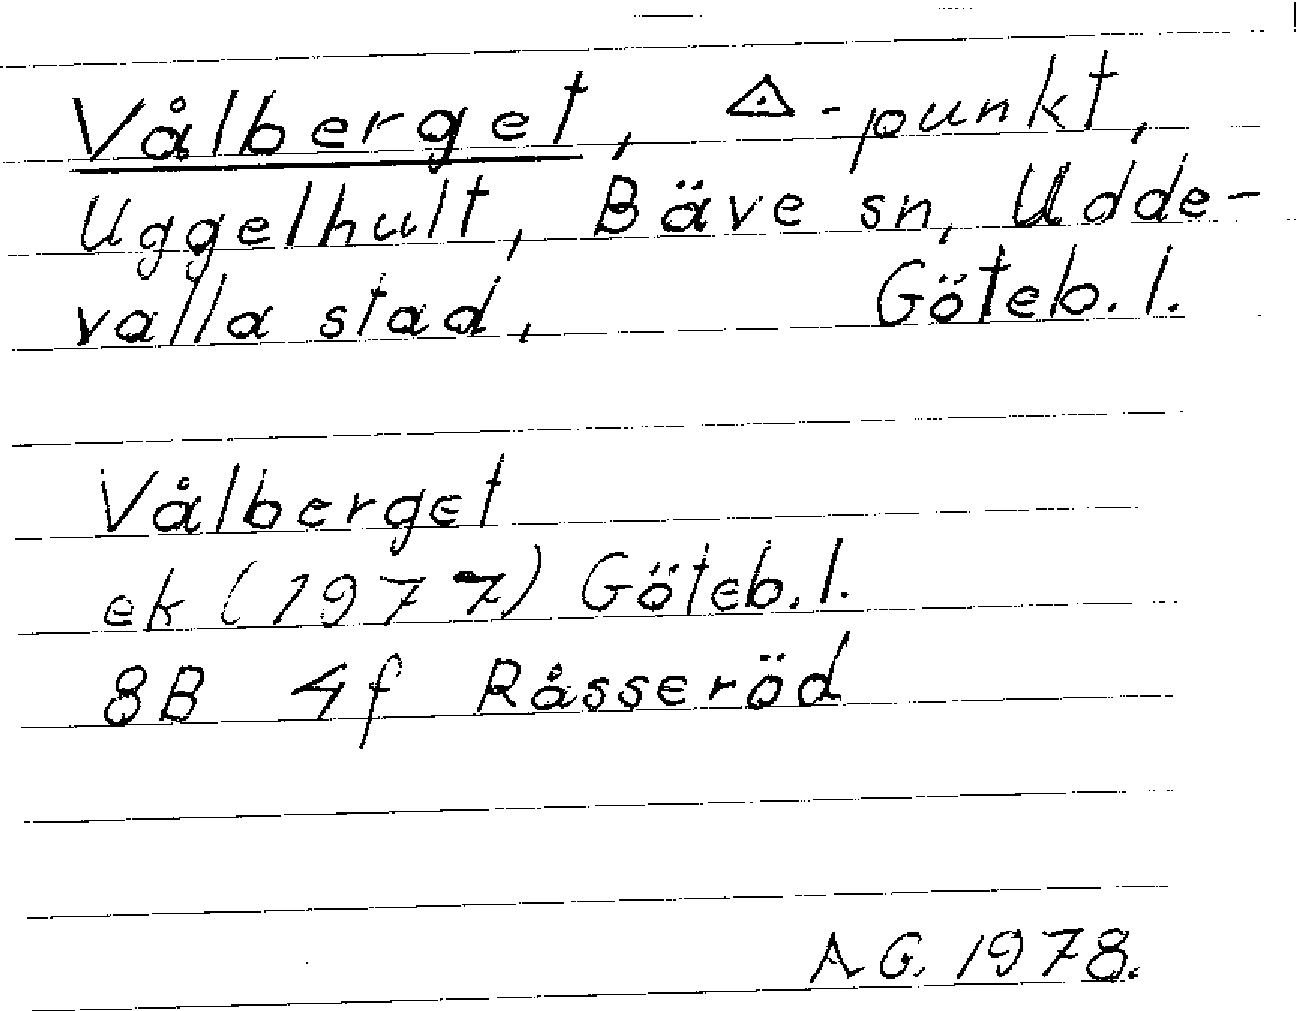 Vålberget, ◬-punkt,
Uggelhult, Bäve sn, Udde-
valla stad, Göteb. l.
Vålberget
ek (1977) Göteb. l.
8B 4f Råsseröd
AG. 1978.